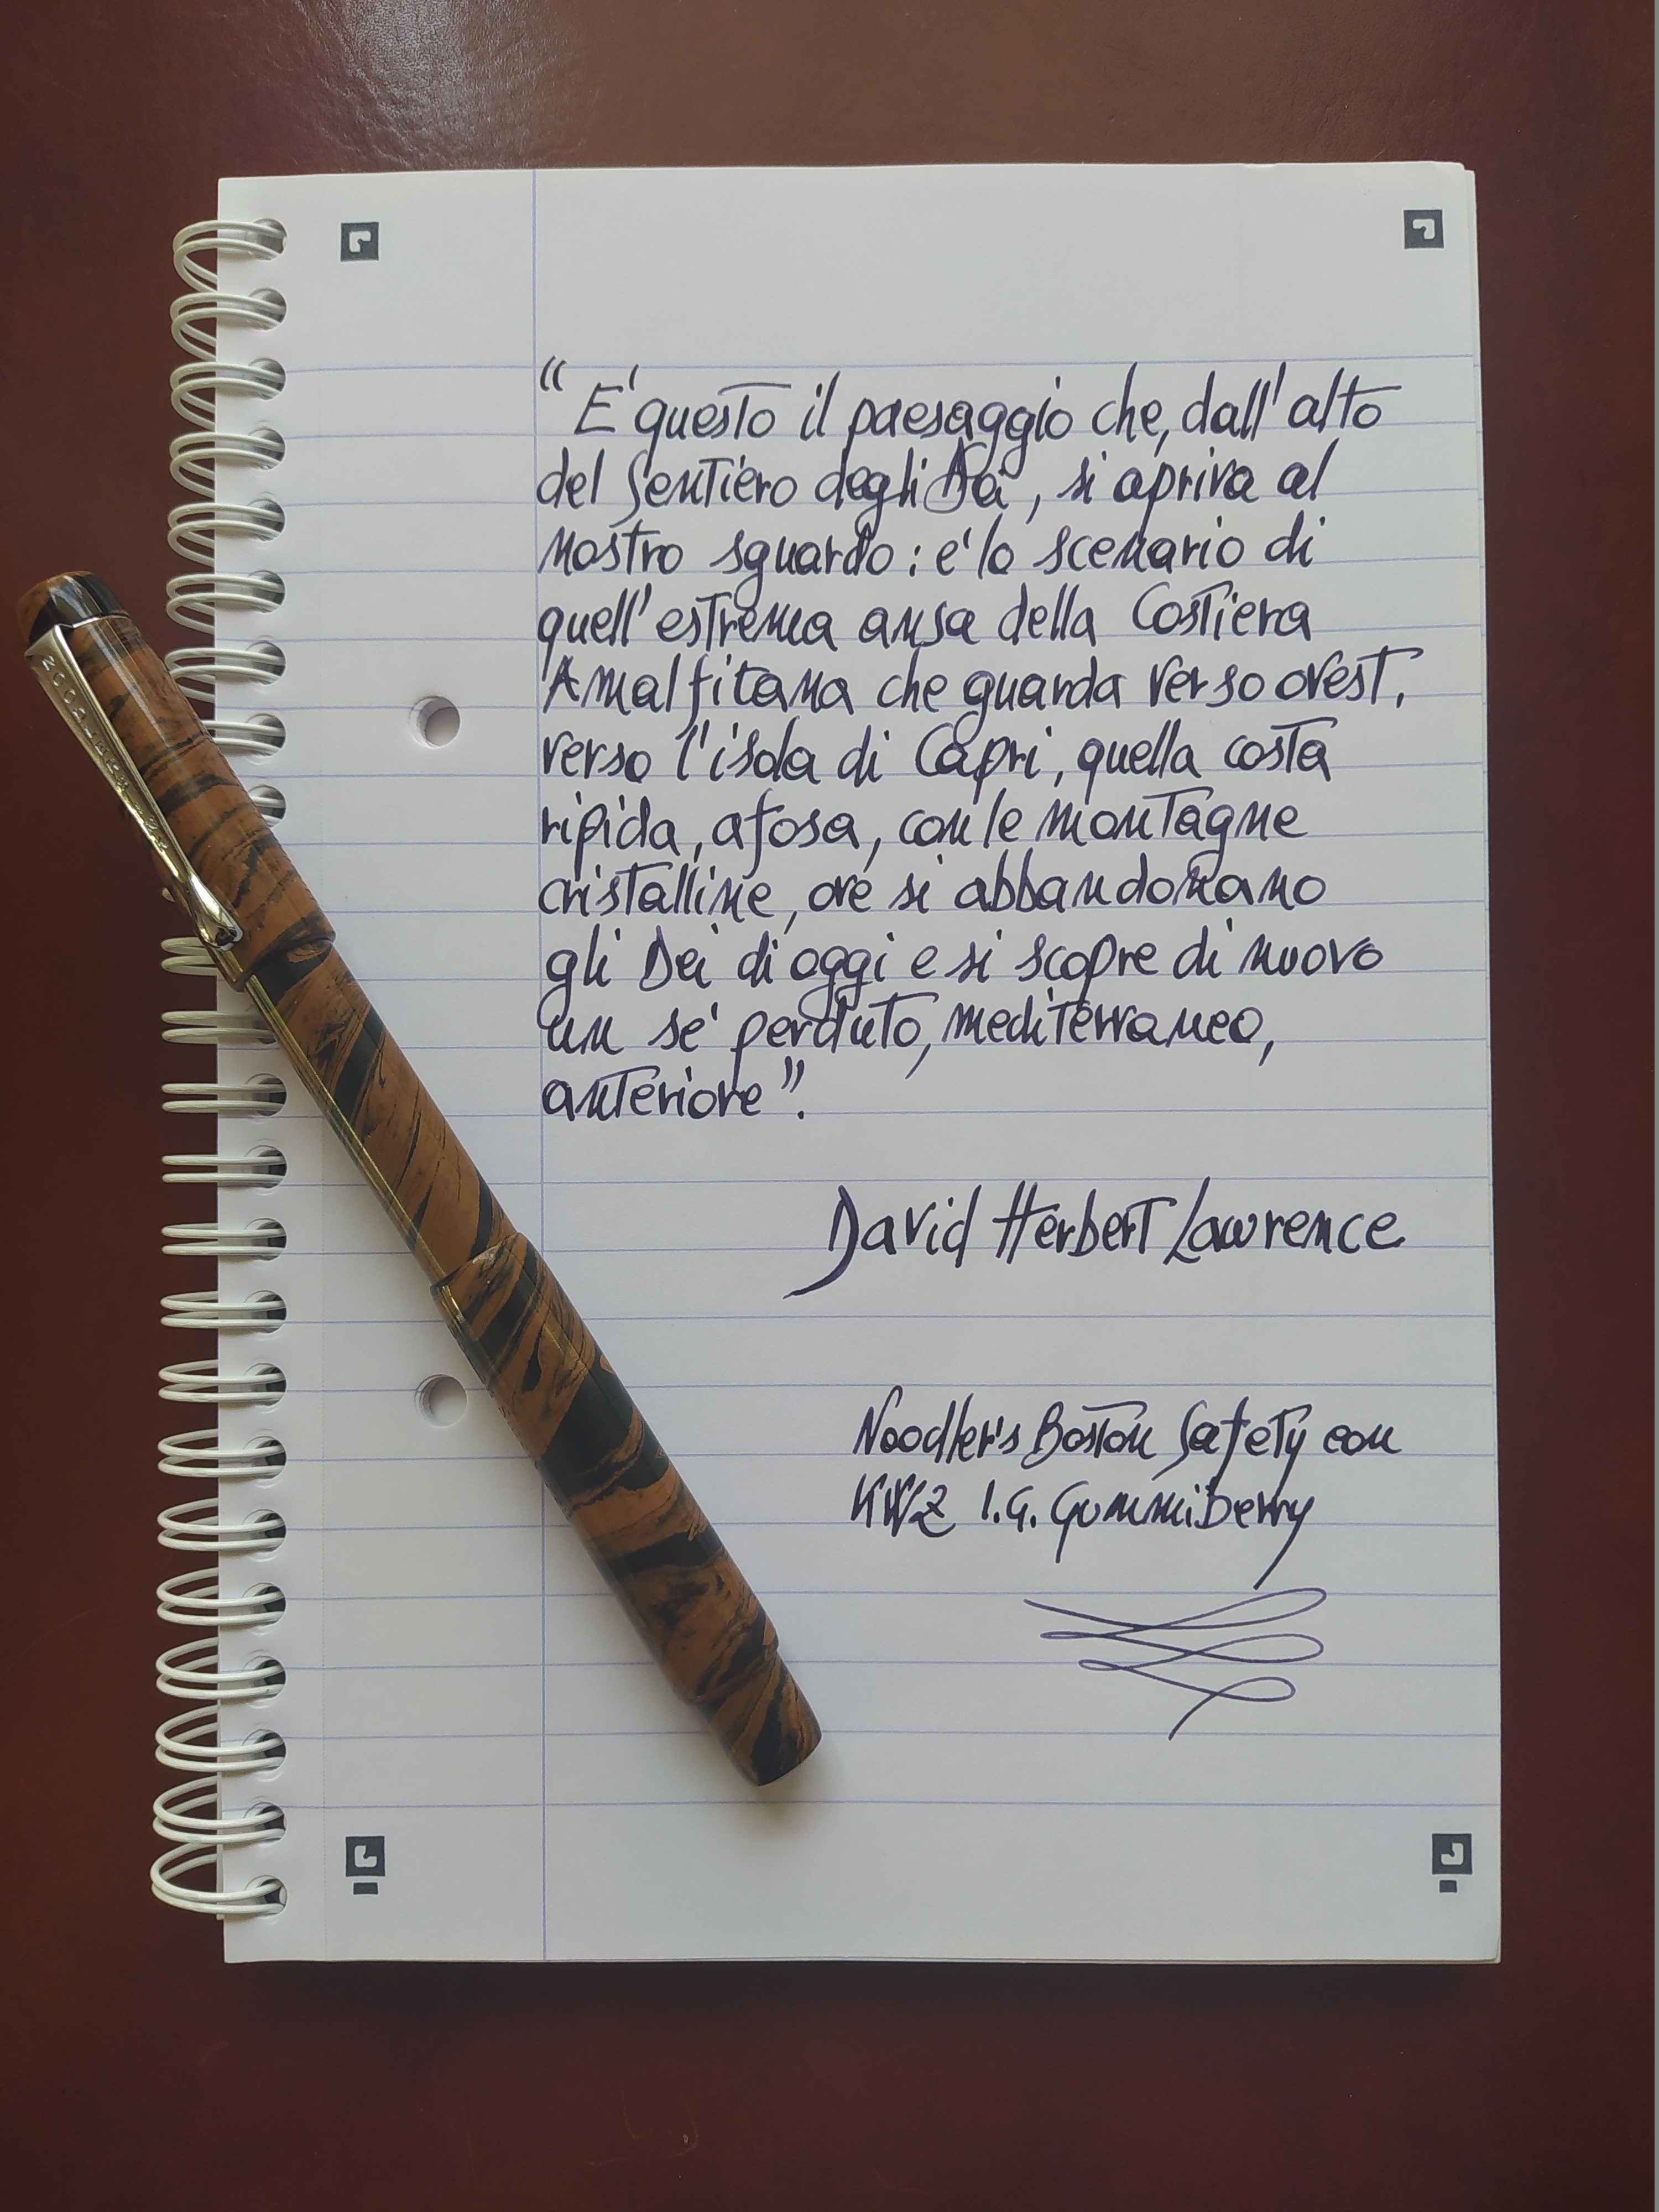 “E' questo il paesaggio che, dall'alto
del Sentiero degli Dei, si apriva al
nostro sguardo: e' lo scenario di
quell'estrema ansa della Costiera
Amalfitana che guarda verso ovest,
verso l'isola di Capri, quella costa
ripida, afosa, con le montagne
cristalline, ove si abbandonano
gli Dei di oggi e si scopre di nuovo
un se' perduto, mediterraneo,
anteriore”.
David Herbert Lawrence
Noodler's Boston Safety con
KWZ I.G. Gummiberry